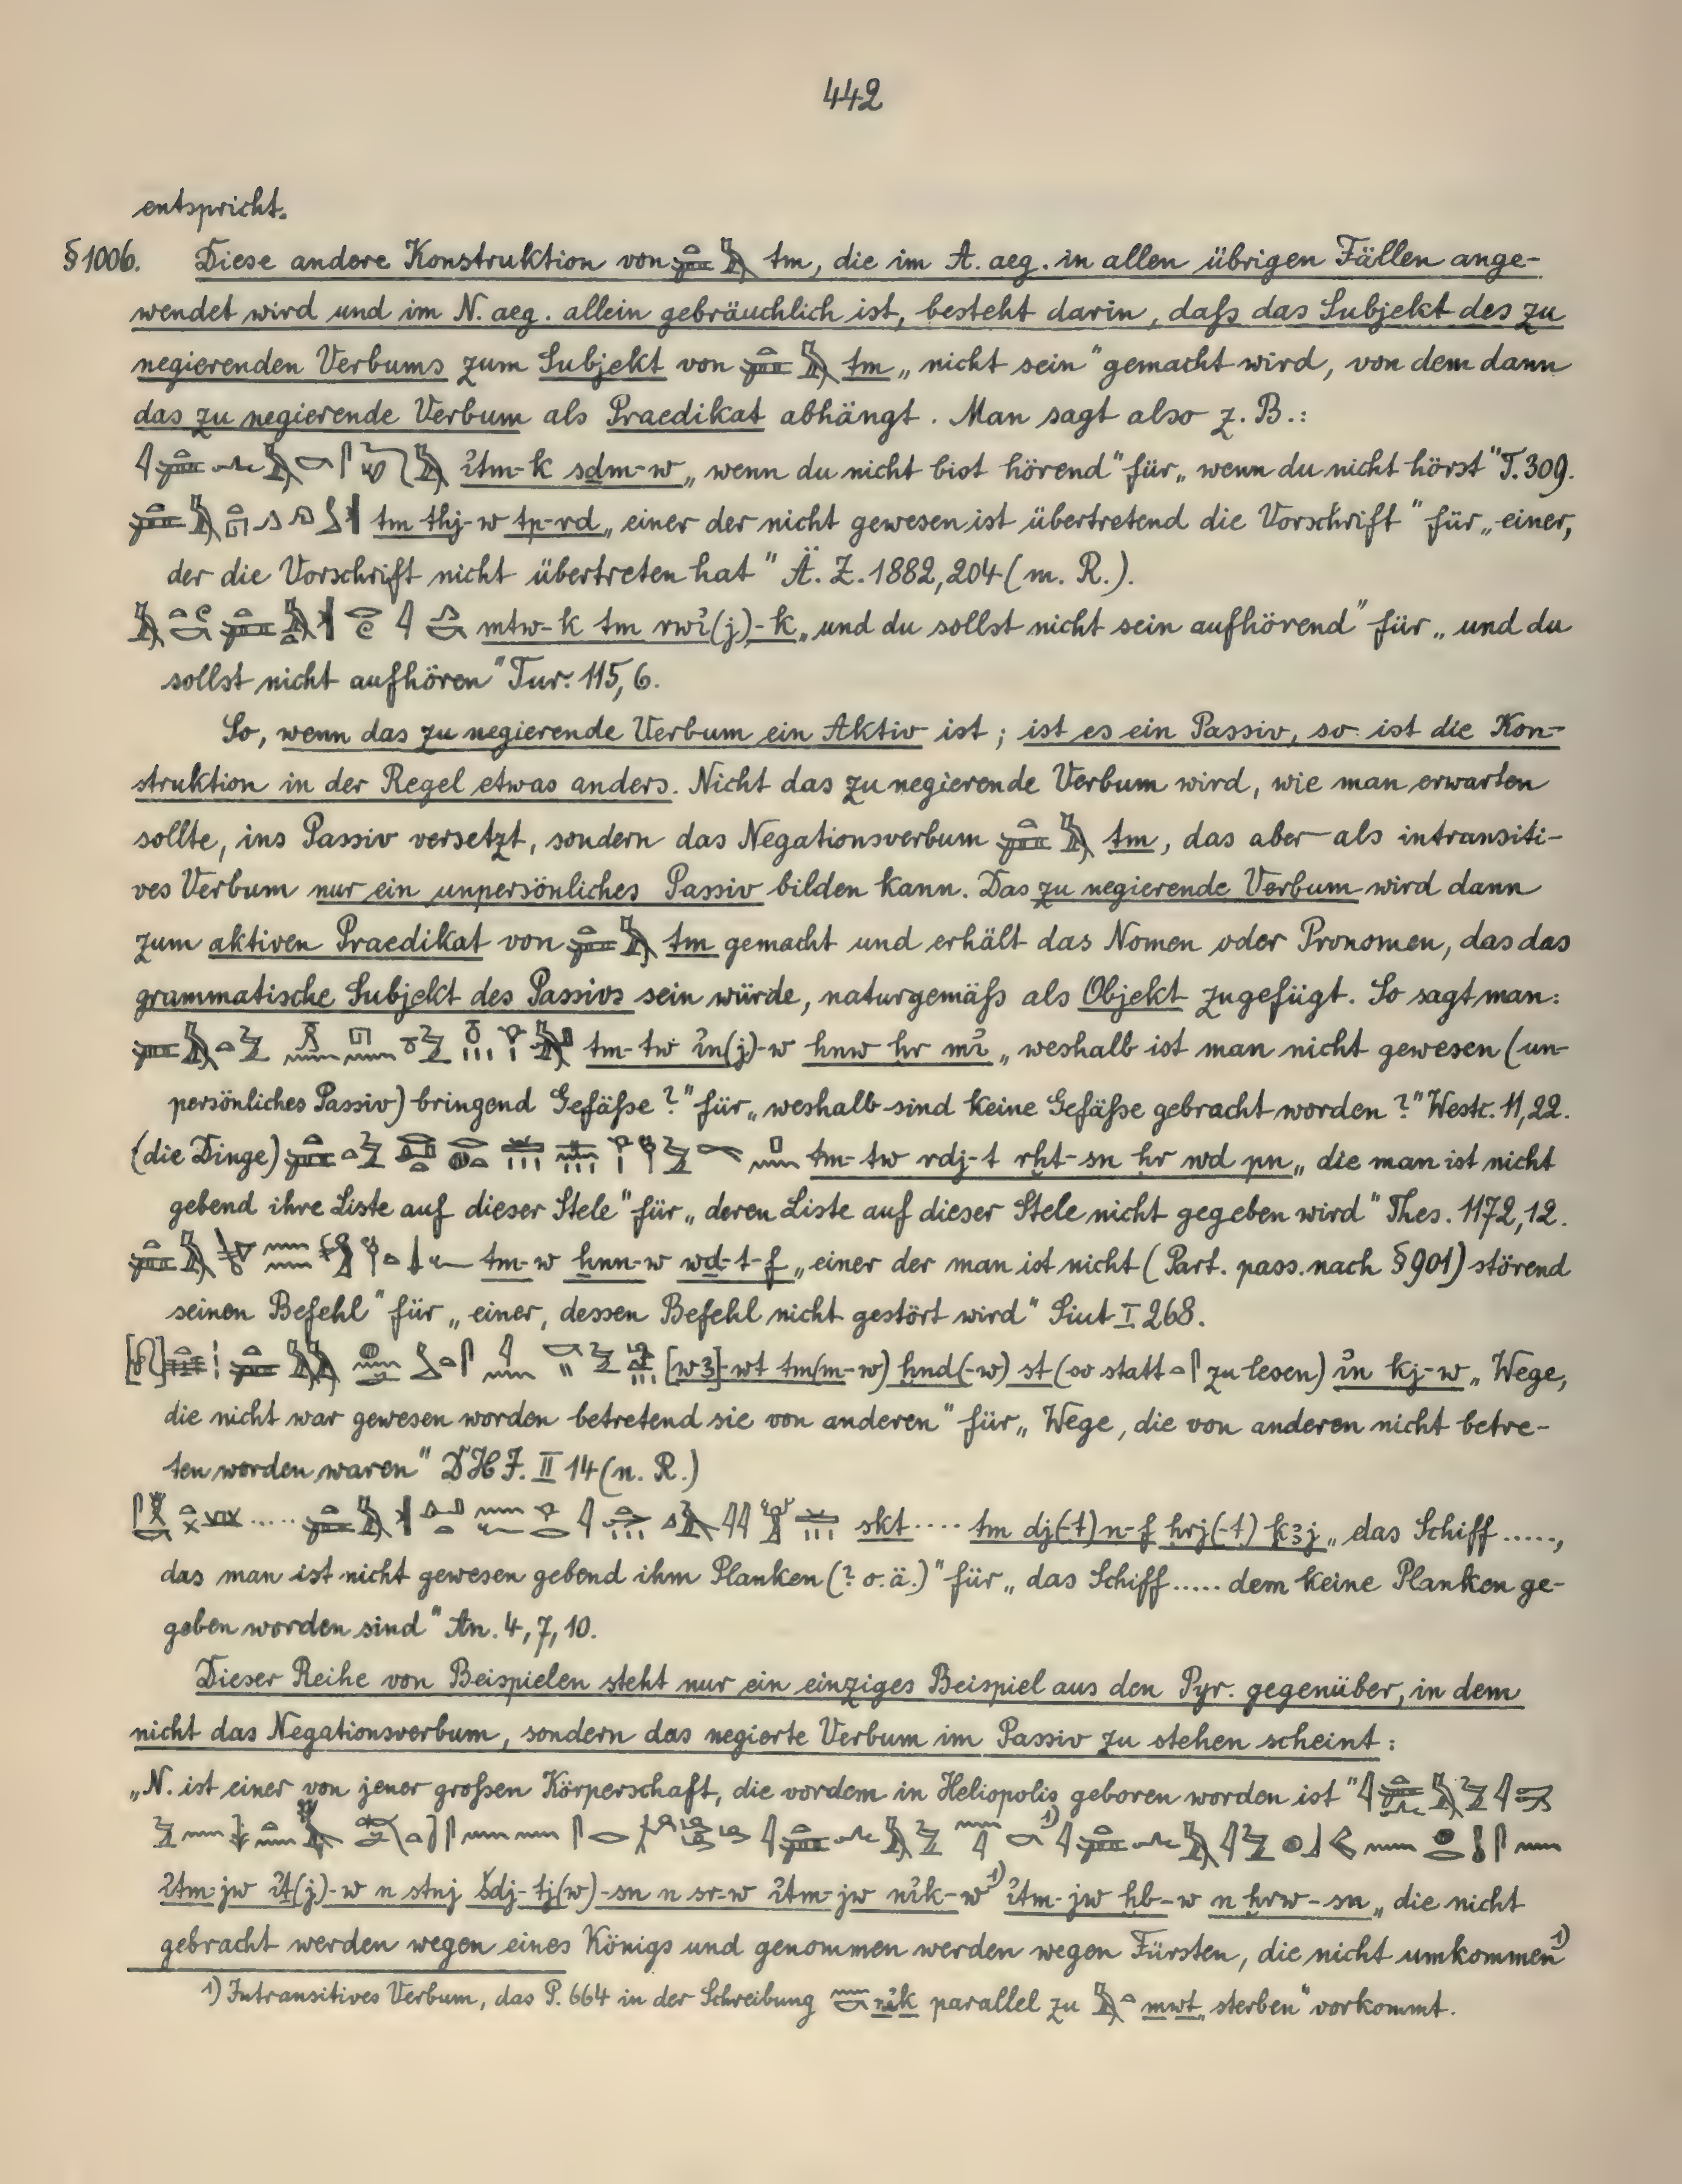 442
entspricht.
§ 1006. Diese andere Konstruktion von tm, die im A. aeg. in allen übrigen Fällen ange-
wendet wird und im N. aeg. allein gebräuchlich ist, besteht darin, daß das Subjekt des zu
negierenden Verbums zum Subjekt von tm „nicht sein" gemacht wird, von dem dann
das zu negierende Verbum als Praedikat abhängt. Man sagt also z. B.:
ỉtm-k sḏm-w „wenn du nicht bist hörend" für „wenn du nicht hörst" T. 309.
tm thj-w tp-rd „einer der nicht gewesen ist übertretend die Vorschrift" für „einer,
der die Vorschrift nicht übertreten hat" Ä. Z. 1882, 204 (m. R.).
mtw-k tm rwỉ(j)-k „und du sollst nicht sein aufhörend" für „und du
sollst nicht aufhören" Tur. 115, 6.
So, wenn das zu negierende Verbum ein Aktiv ist; ist es ein Passiv, so ist die Kon-
struktion in der Regel etwas anders. Nicht das zu negierende Verbum wird, wie man erwarten
sollte, ins Passiv versetzt, sondern das Negationsverbum tm, das aber als intransiti-
ves Verbum nur ein unpersönliches Passiv bilden kann. Das zu negierende Verbum wird dann
zum aktiven Praedikat von tm gemacht und erhält das Nomen oder Pronomen, das das
grammatische Subjekt des Passivs sein würde, naturgemäß als Objekt zugefügt. So sagt man:
tm-tw ỉn(j)-w hnw ḥr mỉ „weshalb ist man nicht gewesen (un-
persönliches Passiv) bringend Gefäße?" für „weshalb sind keine Gefäße gebracht worden?" Westc. 11, 22.
(die Dinge) tm-tw rdj-t rḫt-sn ḥr wḏ pn „die man ist nicht
gebend ihre Liste auf dieser Stele" für „deren Liste auf dieser Stele nicht gegeben wird" Thes. 1172, 12.
tm-w ẖnn-w wḏ-t-f „einer der man ist nicht (Part. pass. nach § 901) störend
seinen Befehl" für „einer, dessen Befehl nicht gestört wird" Siut I 268.
[wꜣ]-wt tm(m-w) ḫnd(-w) st (so statt zu lesen) ỉn kj-w „Wege,
die nicht war gewesen worden betretend sie von anderen" für „Wege, die von anderen nicht betre-
ten worden waren" D H J. II 14 (n. R.)
skt .... tm dj(-t) n-f ḥrj(-t) kꜣj „das Schiff .....,
das man ist nicht gewesen gebend ihm Planken (? o. ä.)" für „das Schiff ..... dem keine Planken ge-
geben worden sind" An. 4, 7, 10.
Dieser Reihe von Beispielen steht nur ein einziges Beispiel aus den Pyr. gegenüber, in dem
nicht das Negationsverbum, sondern das negierte Verbum im Passiv zu stehen scheint:
„N. ist einer von jener großen Körperschaft, die vordem in Heliopolis geboren worden ist"
ỉtm-jw ỉṯ(j)-w n stnj šdj-tj(w)-sn n sr-w ỉtm-jw nỉk-w 1) ỉtm-jw ḫb-w n ḫrw-sn „die nicht
gebracht werden wegen eines Königs und genommen werden wegen Fürsten, die nicht umkommen 1)
1) Intransitives Verbum, das P. 664 in der Schreibung nỉk parallel zu mwt „sterben" vorkommt.